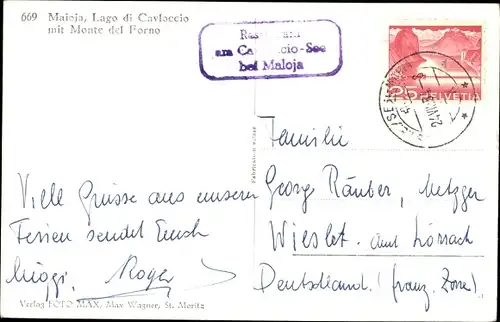 669 Maloja, Lago di Cavloccio
mit Monte del Forno
am Cavloccio-See
bei Maloja
25 HELVETIA
Familie
Georg Räuber, Metzger
Wieslet. amt Lörrach
Deutschland! (franz. Zone).
Viele Grüsse aus unseren
Ferien sendet Euch
Roger
Verlag FOTO MAX, Max Wagner, St. Moritz